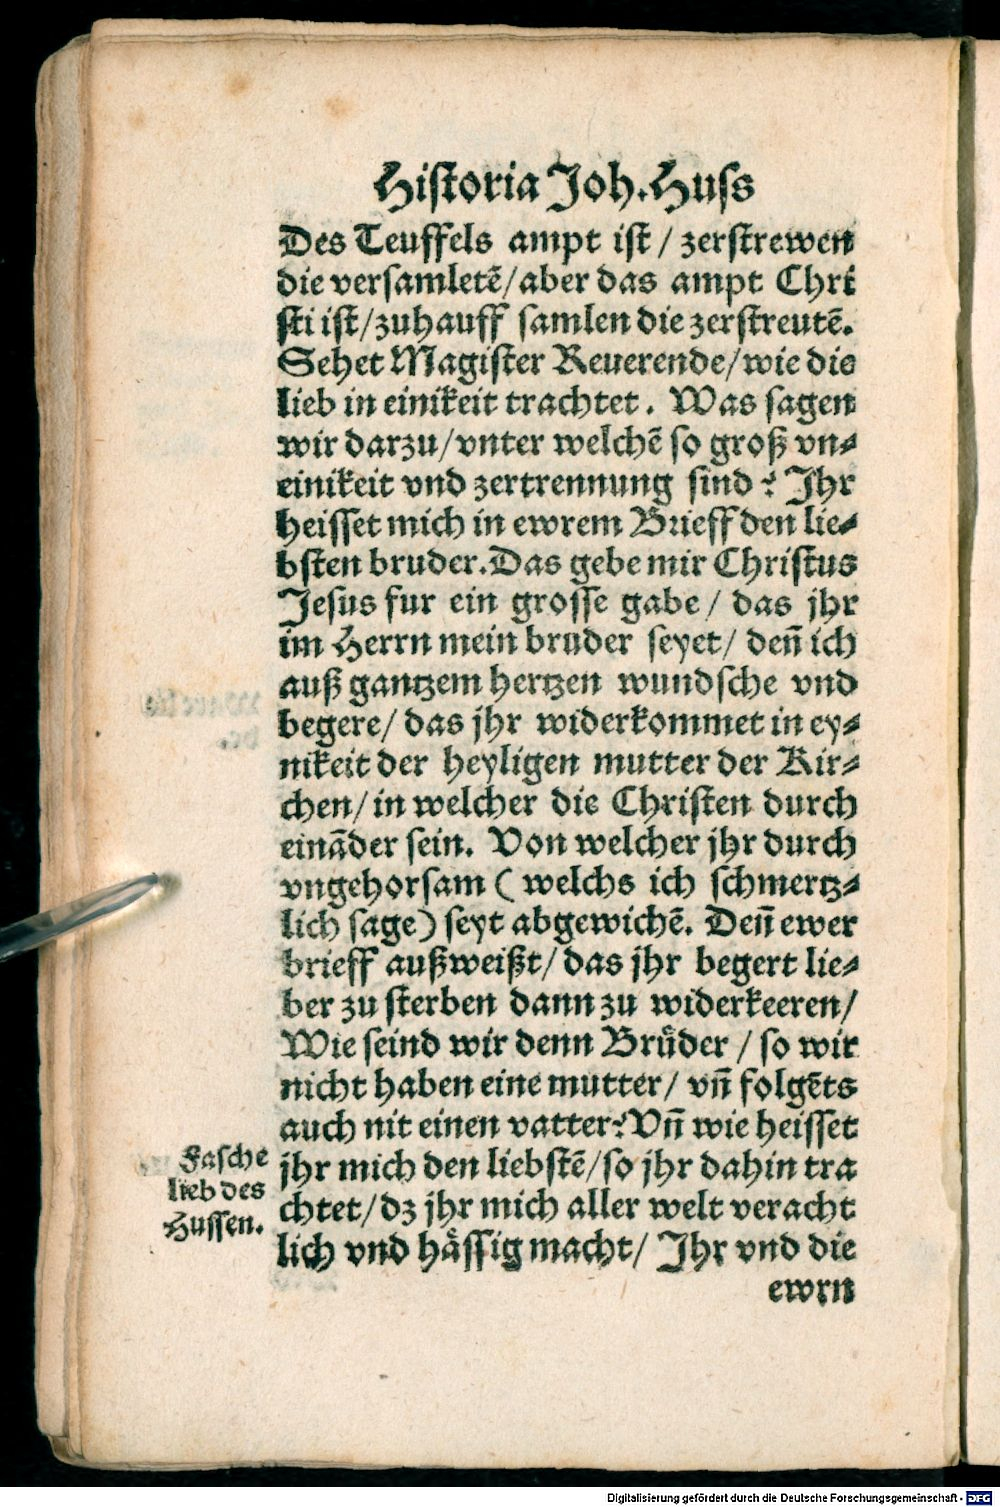 Historia Joh. Huss
Des Teuffels ampt ist / zerstrewen
die versamletē/ aber das ampt Chri
sti ist/ zuhauff samlen die zerstreutē.
Sehet Magister Reuerende/ wie die
lieb in einikeit trachtet. Was sagen
wir darzu/ vnter welchē so groß vn⸗
einikeit vnd zertrennung sind? Jhr
heisset mich in ewrem Brieff den lie⸗
bsten bruder. Das gebe mir Christus
Jesus fur ein grosse gabe / das jhr
im Herrn mein bruder seyet/ deñ ich
auß gantzem hertzen wundsche vnd
begere/ das jhr widerkommet in ey⸗
nikeit der heyligen mutter der Kir⸗
chen/ in welcher die Christen durch
eināder sein. Von welcher jhr durch
vngehorsam ( welchs ich schmertz⸗
lich sage) seyt abgewichē. Deñ ewer
brieff außweißt/ das jhr begert lie⸗
ber zu sterben dann zu widerkeeren/
Wie seind wir denn Brůder / so wir
nicht haben eine mutter/ vñ folgēts
auch nit einen vatter? Vñ wie heisset
jhr mich den liebstē/ so jhr dahin tra
chtet/ dz jhr mich aller welt veracht
lich vnd hässig macht/ Jhr vnd die
ewrn
Fasche
lieb des
Hussen.
Digitalisierung gefördert durch die Deutsche Forschungsgemeinschaft - DFG